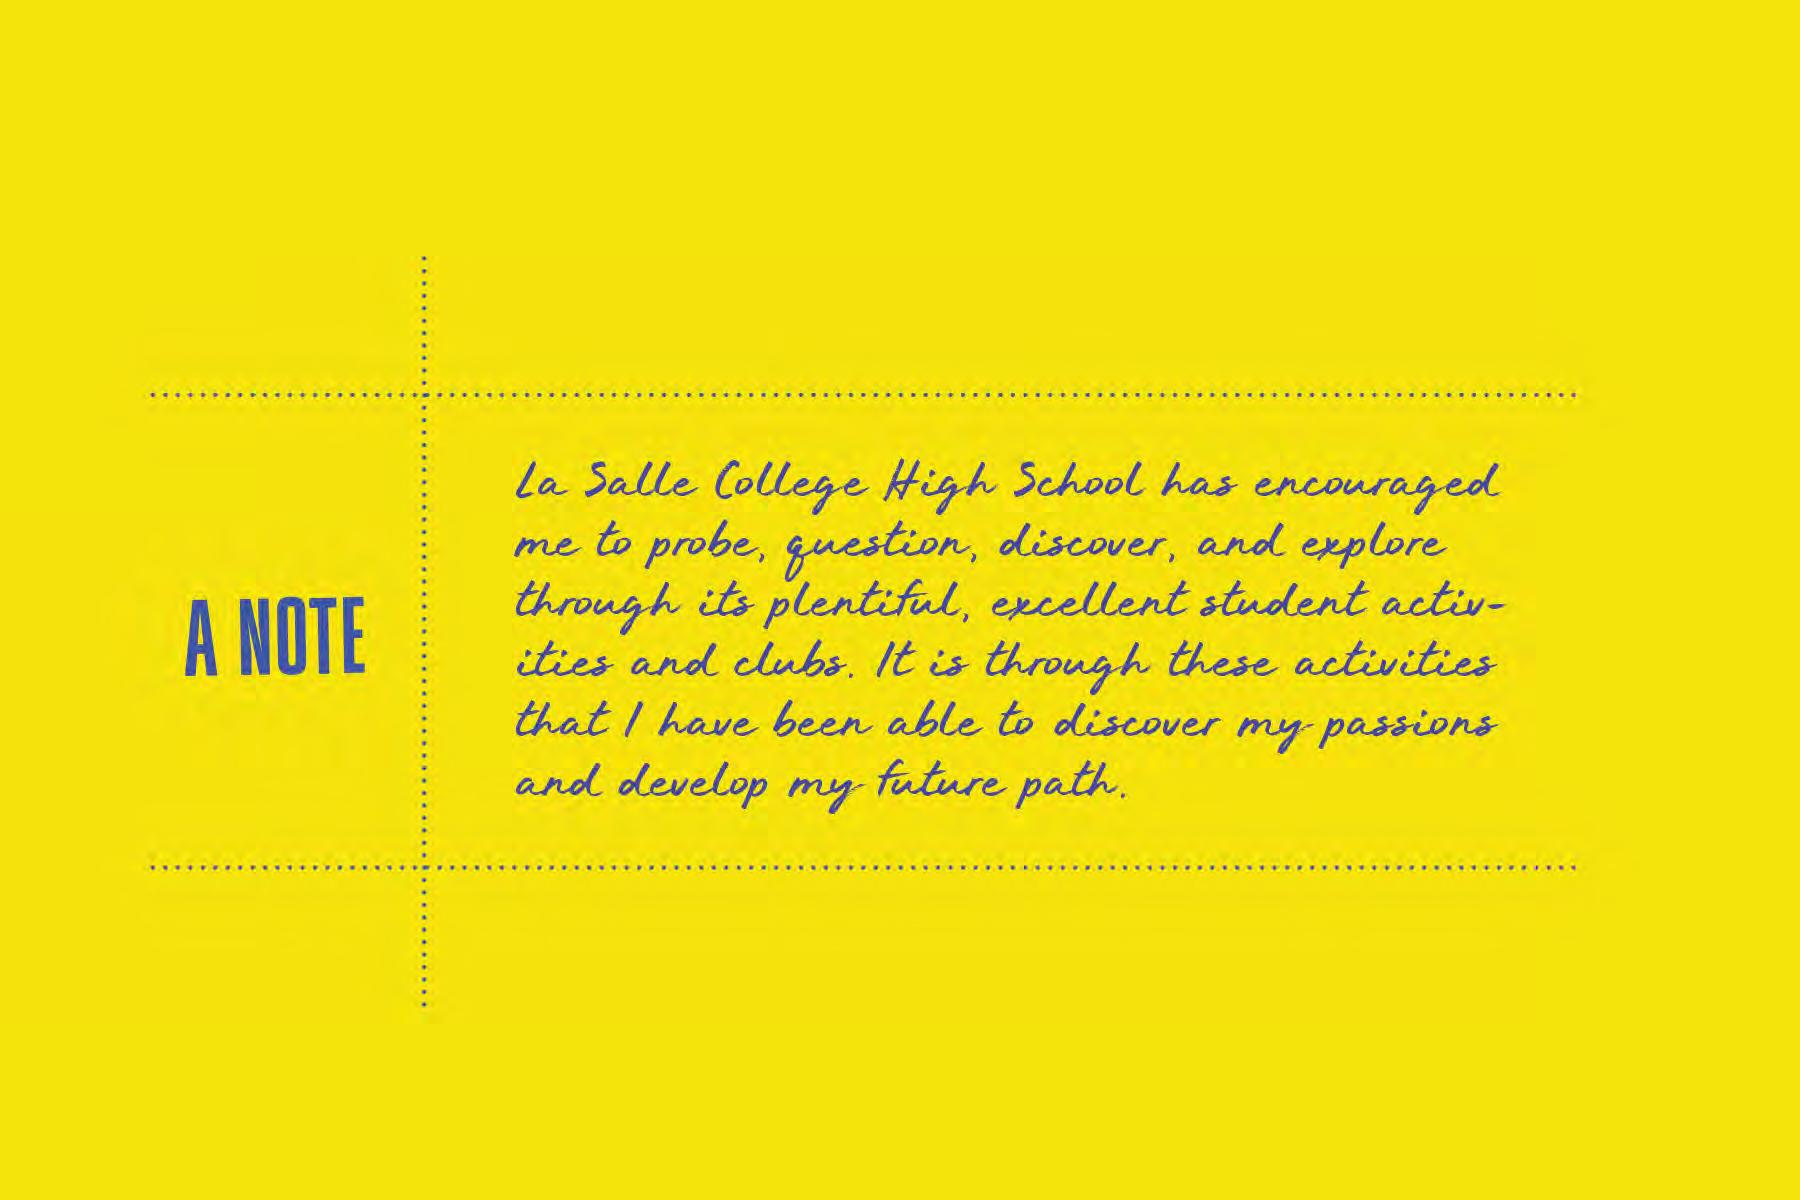 A NOTE
La Salle College High School has encouraged
me to probe, question, discover, and explore
through its plentiful, excellent student activ-
ities and clubs. It is through these activities
that I have been able to discover my passions
and develop my future path.